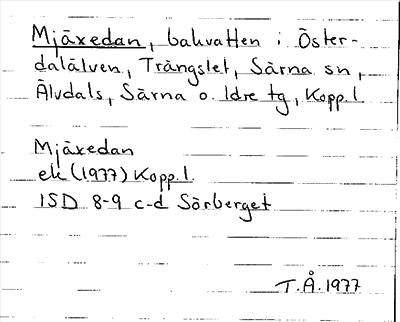 Mjäxedan, bakvatten i Öster-
dalälven, Trängslet, Särna sn,
Älvdals, Särna o. Idre tg, Kopp.l.
Mjäxedan
ek (1977) Kopp.l.
ISD 8-9 c-d Sörberget
T.Å. 1977